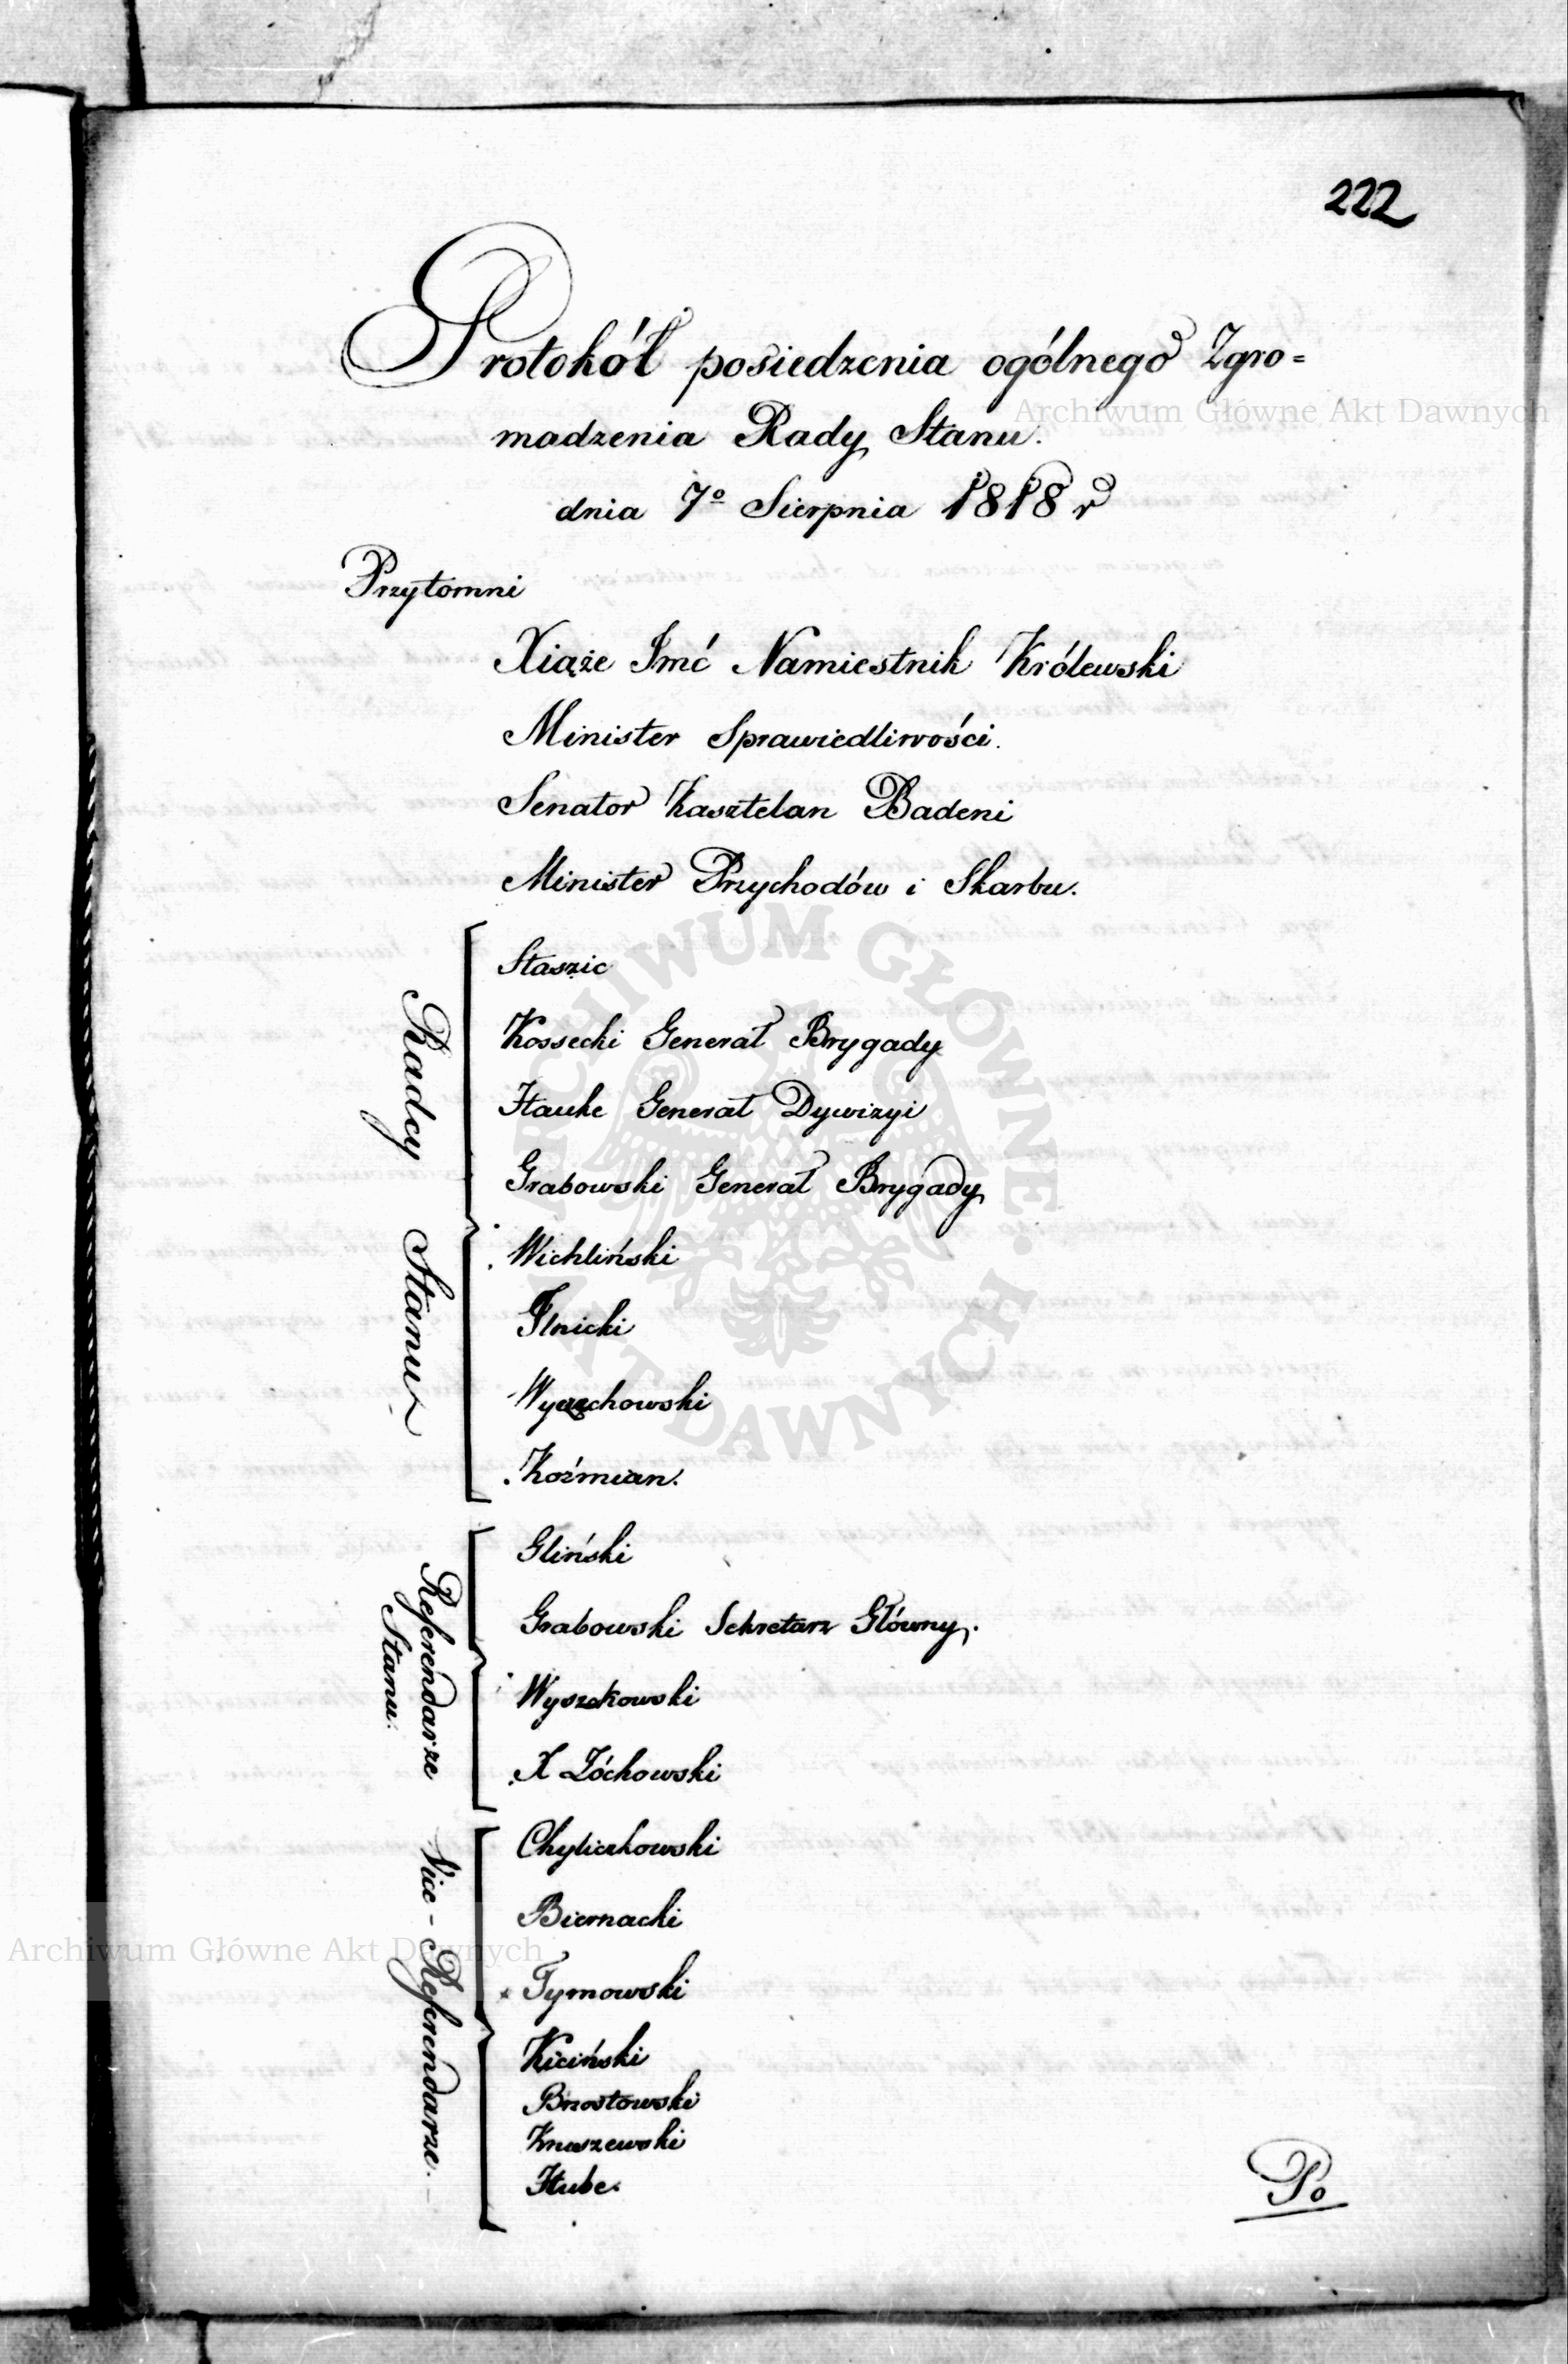 222
Protokół posiedzenia ogólnego Zgro=
madzenia Rady Stanu.
dnia 7º Sierpnia 1818 r
Przytomni
Xiąże Jmć Namiestnik Królewski
Minister Sprawiedliwości.
Senator Kasztelan Badeni
Minister Przychodów i Skarbu.
Radcy Stanu
Staszic
Kossecki Generał Brygady
Hauke Generał Dywizyi
Grabowski Generał Brygady
Wichliński
Jlnicki
Wyczechowski
Koźmian.
Referendarze
Stanu.
Gliński
Grabowski Sekretarz Główny.
Wyszekowski
X Zóchowski
Vice-Referendarze.
Chyliczkowski
Biernacki
Tymowski
Kiciński
Brzostowski
Knaszewski
Hube.
Po
Archiwum Główne Akt Dawnych
ARCHIWUM GŁÓWNE AKT DAWNYCH
Archiwum Główne Akt Dawnych